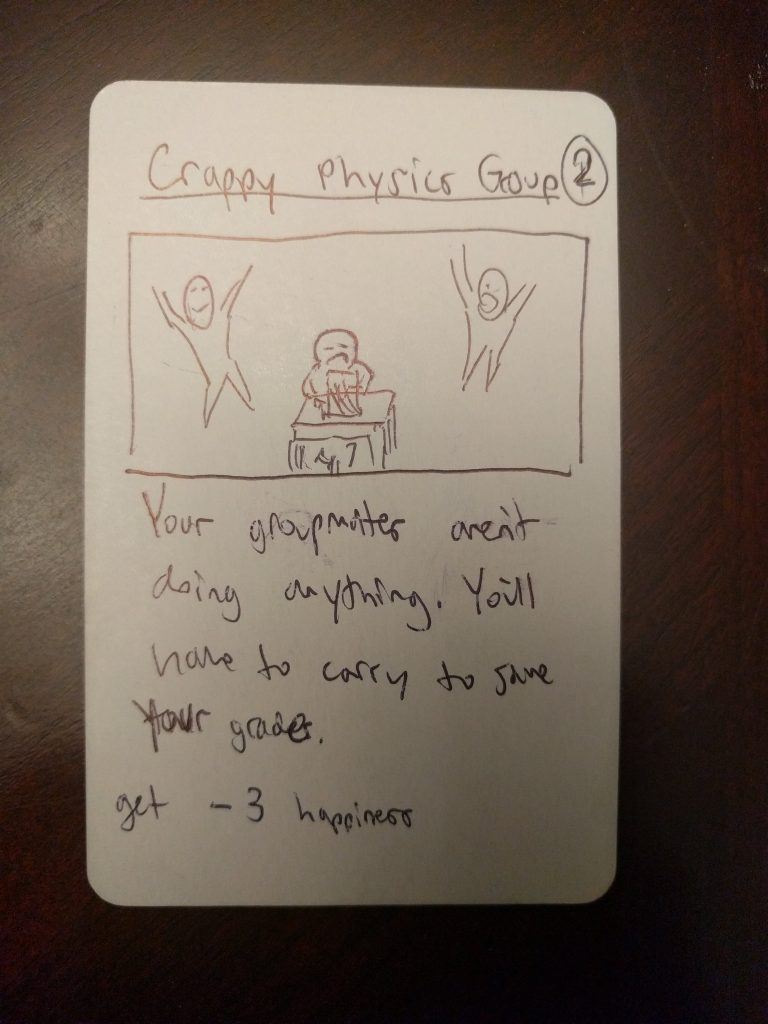 Crappy Physics Group 2
Your groupmates aren't
doing anything. You'll
have to carry to save
your grades.
get -3 happiness